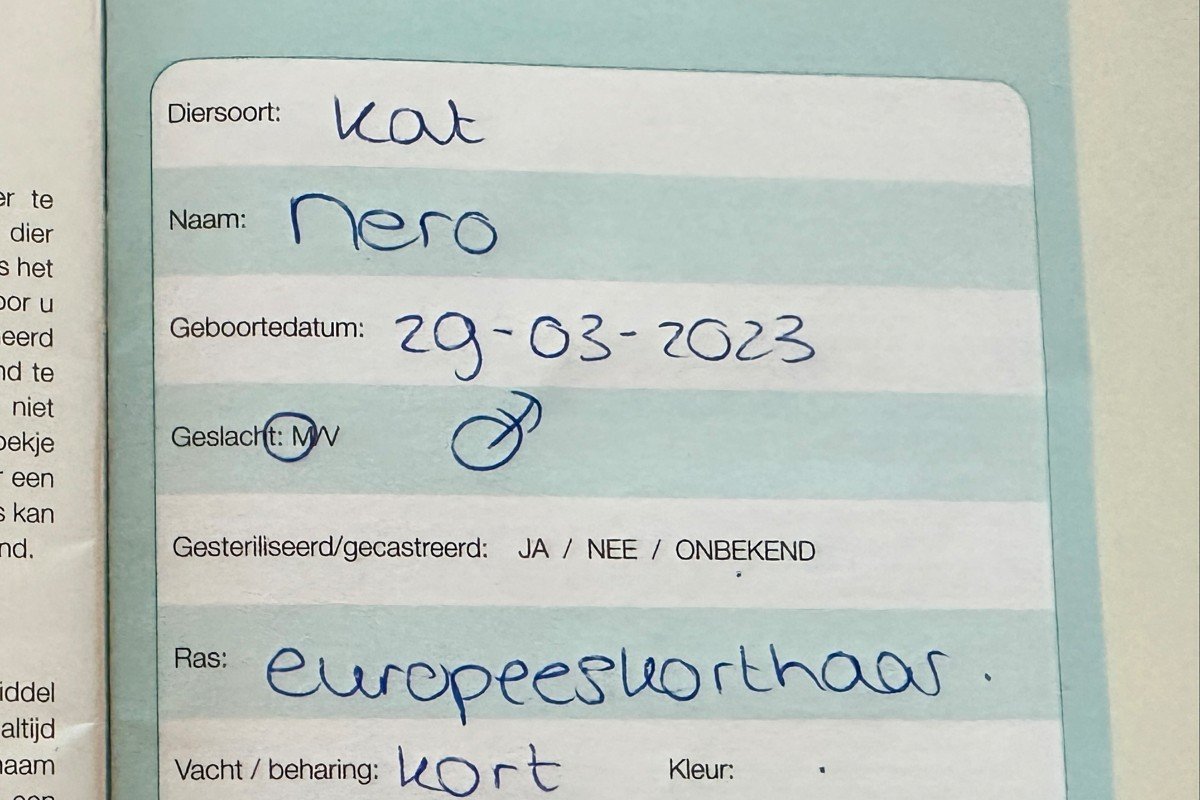 er te
dier
s het
oor u
eerd
nd te
niet
oekje
een
s kan
nd.
iddel
altijd
naam
Diersoort: kat
Naam: nero
Geboortedatum: 29-03-2023
Geslacht: M/V ♂
Gesteriliseerd/gecastreerd: JA / NEE / ONBEKEND
Ras: europeeskorthaar.
Vacht / beharing: kort Kleur: